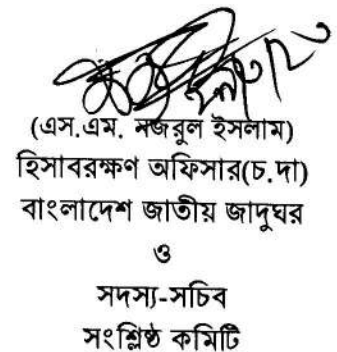 (এস.এম. নজরুল ইসলাম)
হিসাবরক্ষণ অফিসার(চ.দা)
বাংলাদেশ জাতীয় জাদুঘর
ও
সদস্য-সচিব
সংশ্লিষ্ঠ কমিটি